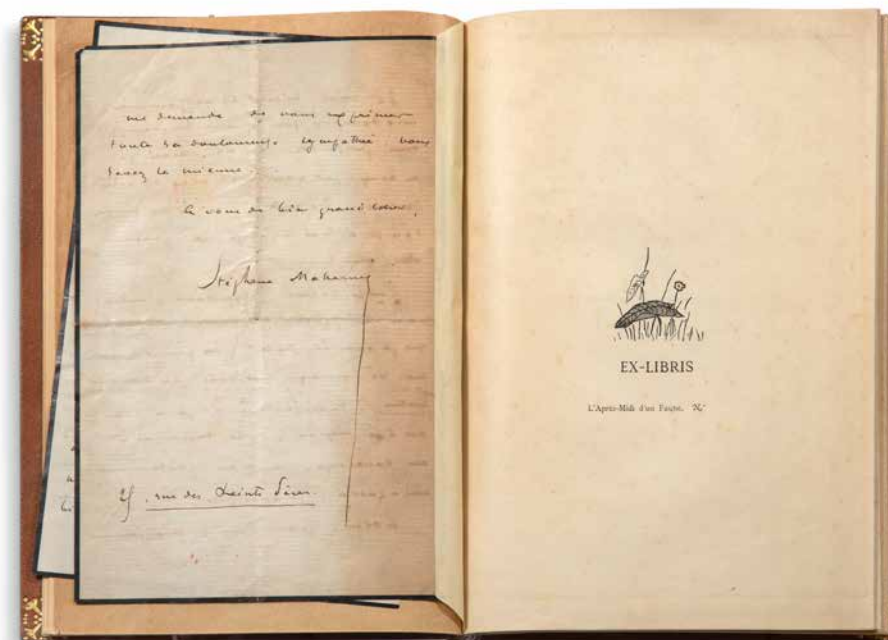 me demande de vous exprimer
toute sa douloureuse sympathie. vous
savez la mienne.
Le vôtre de bien grand cœur,
Stéphane Mallarmé
25, rue des Saints Pères.
EX-LIBRIS
L'Après-Midi d'un Faune.